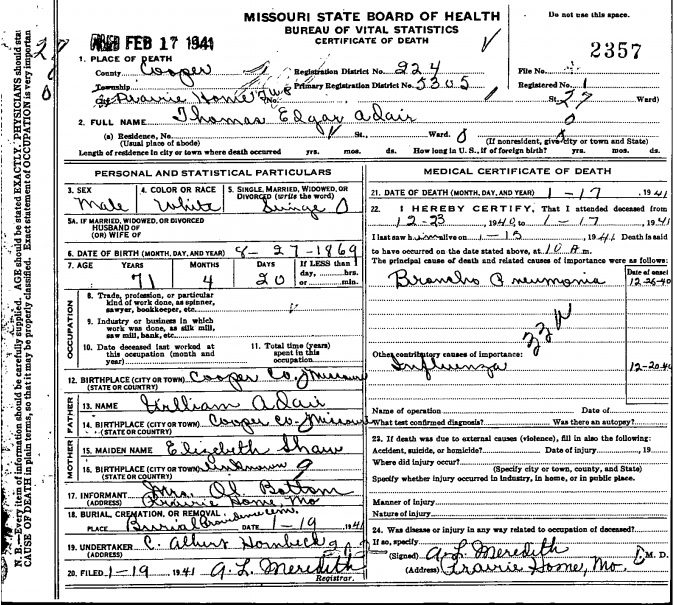 MISSOURI STATE BOARD OF HEALTH
BUREAU OF VITAL STATISTICS
CERTIFICATE OF DEATH
Do not use this space.
FEB 17 1941
2357
1. PLACE OF DEATH
County Cooper Registration District No. 224 File No.
Township Primary Registration District No. 5305 Registered No. 1
City Prairie Home No. St. Ward)
2. FULL NAME Thomas Edgar Adair
(a) Residence, No. St., Ward.
(Usual place of abode) (If nonresident, give city or town and State)
Length of residence in city or town where death occurred yrs. mos. ds. How long in U. S., if of foreign birth? yrs. mos. ds.
PERSONAL AND STATISTICAL PARTICULARS
3. SEX Male
4. COLOR OR RACE White
5. SINGLE, MARRIED, WIDOWED, OR DIVORCED (write the word) Single
5A. IF MARRIED, WIDOWED, OR DIVORCED
HUSBAND OF
(OR) WIFE OF
6. DATE OF BIRTH (MONTH, DAY, AND YEAR) 8-27-1869
7. AGE YEARS MONTHS DAYS If LESS than 1 day, hrs. or min.
71 4 20
OCCUPATION
8. Trade, profession, or particular
kind of work done, as spinner,
sawyer, bookkeeper, etc.
9. Industry or business in which
work was done, as silk mill,
saw mill, bank, etc.
10. Date deceased last worked at
this occupation (month and
year)
11. Total time (years)
spent in this
occupation
12. BIRTHPLACE (CITY OR TOWN) Cooper Co. Missouri
(STATE OR COUNTRY)
FATHER
13. NAME William Adair
14. BIRTHPLACE (CITY OR TOWN) Cooper Co. Missouri
(STATE OR COUNTRY)
MOTHER
15. MAIDEN NAME Elizabeth Shaw
16. BIRTHPLACE (CITY OR TOWN) Unknown
(STATE OR COUNTRY)
17. INFORMANT Mrs. Ol Bottom
(ADDRESS) Prairie Home, Mo
18. BURIAL, CREMATION, OR REMOVAL
PLACE Burial DATE 1-19 1941
19. UNDERTAKER C. Albert Hornbeck
(ADDRESS)
20. FILED 1-19 1941 A. L. Meredith
Registrar.
MEDICAL CERTIFICATE OF DEATH
21. DATE OF DEATH (MONTH, DAY, AND YEAR) 1-17, 1941
22. I HEREBY CERTIFY, That I attended deceased from
12-23, 1940, to 1-17, 1941
I last saw him alive on 1-15, 1941 Death is said
to have occurred on the date stated above, at 10 A m.
The principal cause of death and related causes of importance were as follows:
Date of onset
Broncho Pneumonia 12-26-40
Other contributory causes of importance:
Influenza 12-20-40
Name of operation Date of
What test confirmed diagnosis? Was there an autopsy?
23. If death was due to external causes (violence), fill in also the following:
Accident, suicide, or homicide? Date of injury , 19
Where did injury occur?
(Specify city or town, county, and State)
Specify whether injury occurred in industry, in home, or in public place.
Manner of injury
Nature of injury
24. Was disease or injury in any way related to occupation of deceased?
If so, specify
(Signed) A. L. Meredith M. D.
(Address) Prairie Home, Mo.
N. B.—Every item of information should be carefully supplied. AGE should be stated EXACTLY. PHYSICIANS should state
CAUSE OF DEATH in plain terms, so that it may be properly classified. Exact statement of OCCUPATION is very important